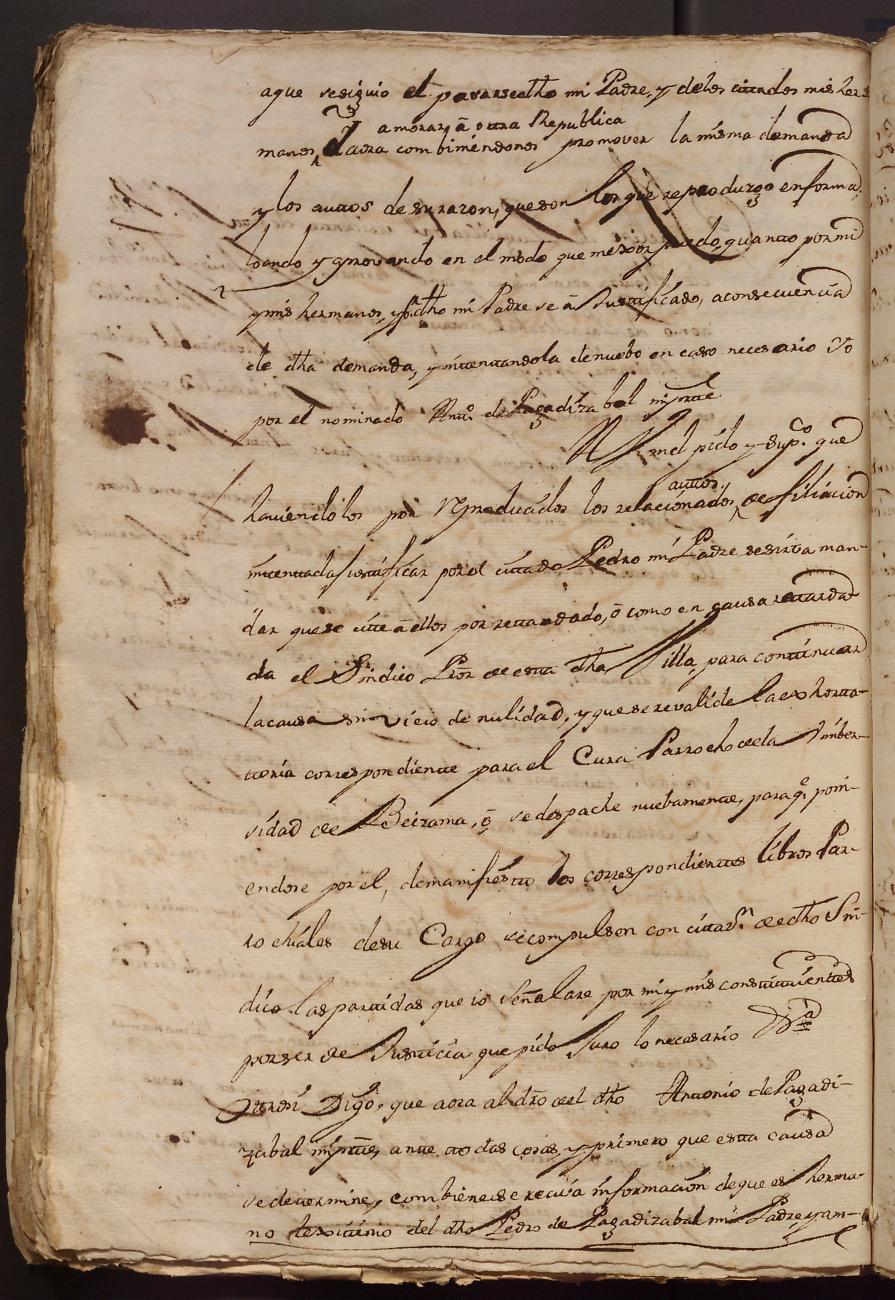 aque se siguio el pararse dho mi Padre, y de los cittados mis her-
a morar, â ottra Republica
manos, y aora combiniendonos promover la misma demanda
y los auttos de su razon, que son los que reproduzgo en forma,
loando y aprovando en el modo que mexor puedo, quantto por mi
y mis hermanos, y dho mi Padre se â Justtificado, a consecuencia
de dha demanda, e yntentandola de nuebo en caso necesario Yo
por el nominado Antt.º de Pagadizabal mi partte
A Vm el pido y supp.co que
auttos
haviendolos por reproducidos los relacionados, de filiacion
inttentada justtificar por el cittado Pedro mi Padre se sirba man-
dar que se citte â ellos por rettardado, ô como en causa rettarda-
da el Sindico Pror de estta dha Villa, para conttinuar
la causa sin vicio de nulidad, y que se revalide la exhortta-
ttoria correspondientte para el Cura Parrocho de la Uniber-
sidad de Beizama, ô se despache nuebamente, para q.e poni-
endose por el, de manifiestto los correspondienttes libros Par-
rochiales de su Cargo se compulsen con cittaz.n de dho Sin-
dico las parttidas que io señalare por mi y mis consttituienttes
por ser de Justticia que pido Juro lo necesario &.a
Ottrosi Digo, que aora al dho del dho Anttonio de Pagadi-
zabal mi partte, antte ttodas cosas, y primero que estta causa
se dettermine, combiene se reciva informacion de que es herma-
no lexittimo del dho Pedro de Pagadizabal mi Padre, y am-